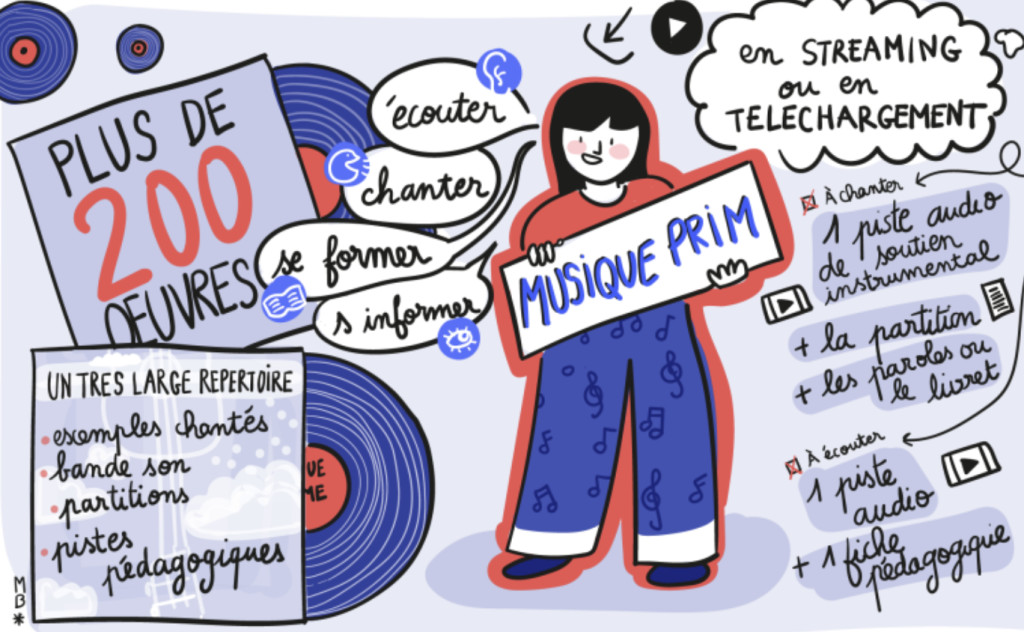 PLUS DE
200
OEUVRES
écouter
chanter
se former
s informer
MUSIQUE PRIM
en STREAMING
ou en
TELECHARGEMENT
À chanter
1 piste audio
de soutien
instrumental
+ la partition
+ les paroles ou
le livret
À écouter
1 piste
audio
+ 1 fiche
pédagogique
UN TRES LARGE REPERTOIRE
exemples chantés
bande son
partitions
pistes
pédagogiques
UE
ME
MB*